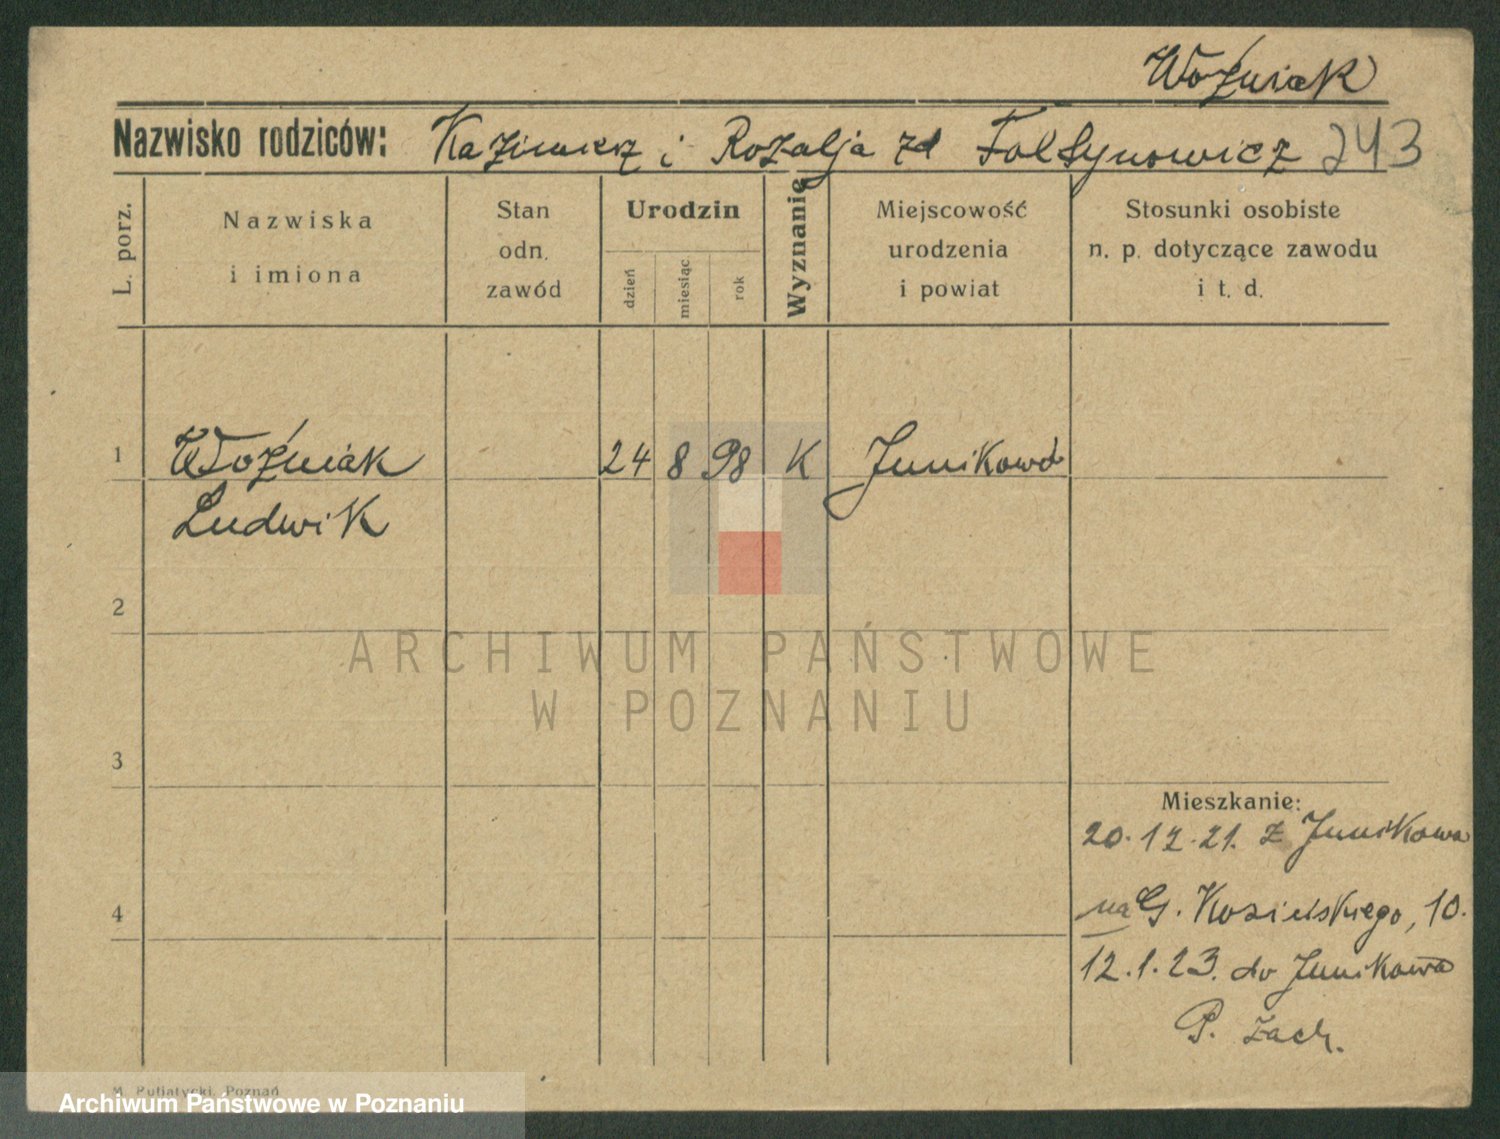 Woźniak
Nazwisko rodziców: Kazimierz i Rozalja zd Foltynowicz 243
L. porz.
Nazwiska
i imiona
Stan
odn.
zawód
Urodzin
dzień
miesiąc
rok
Wyznanie
Miejscowość
urodzenia
i powiat
Stosunki osobiste
n. p. dotyczące zawodu
i t. d.
1 Woźniak 24 8 98 K Junikowo
Ludwik
2
ARCHIWUM PAŃSTWOWE
W POZNANIU
3
Mieszkanie:
20.12.21. z Junikowa
na G. Kosińskiego, 10.
4
12.1.23. do Junikowa
P. zach.
M. Putiatycki, Poznań
Archiwum Państwowe w Poznaniu